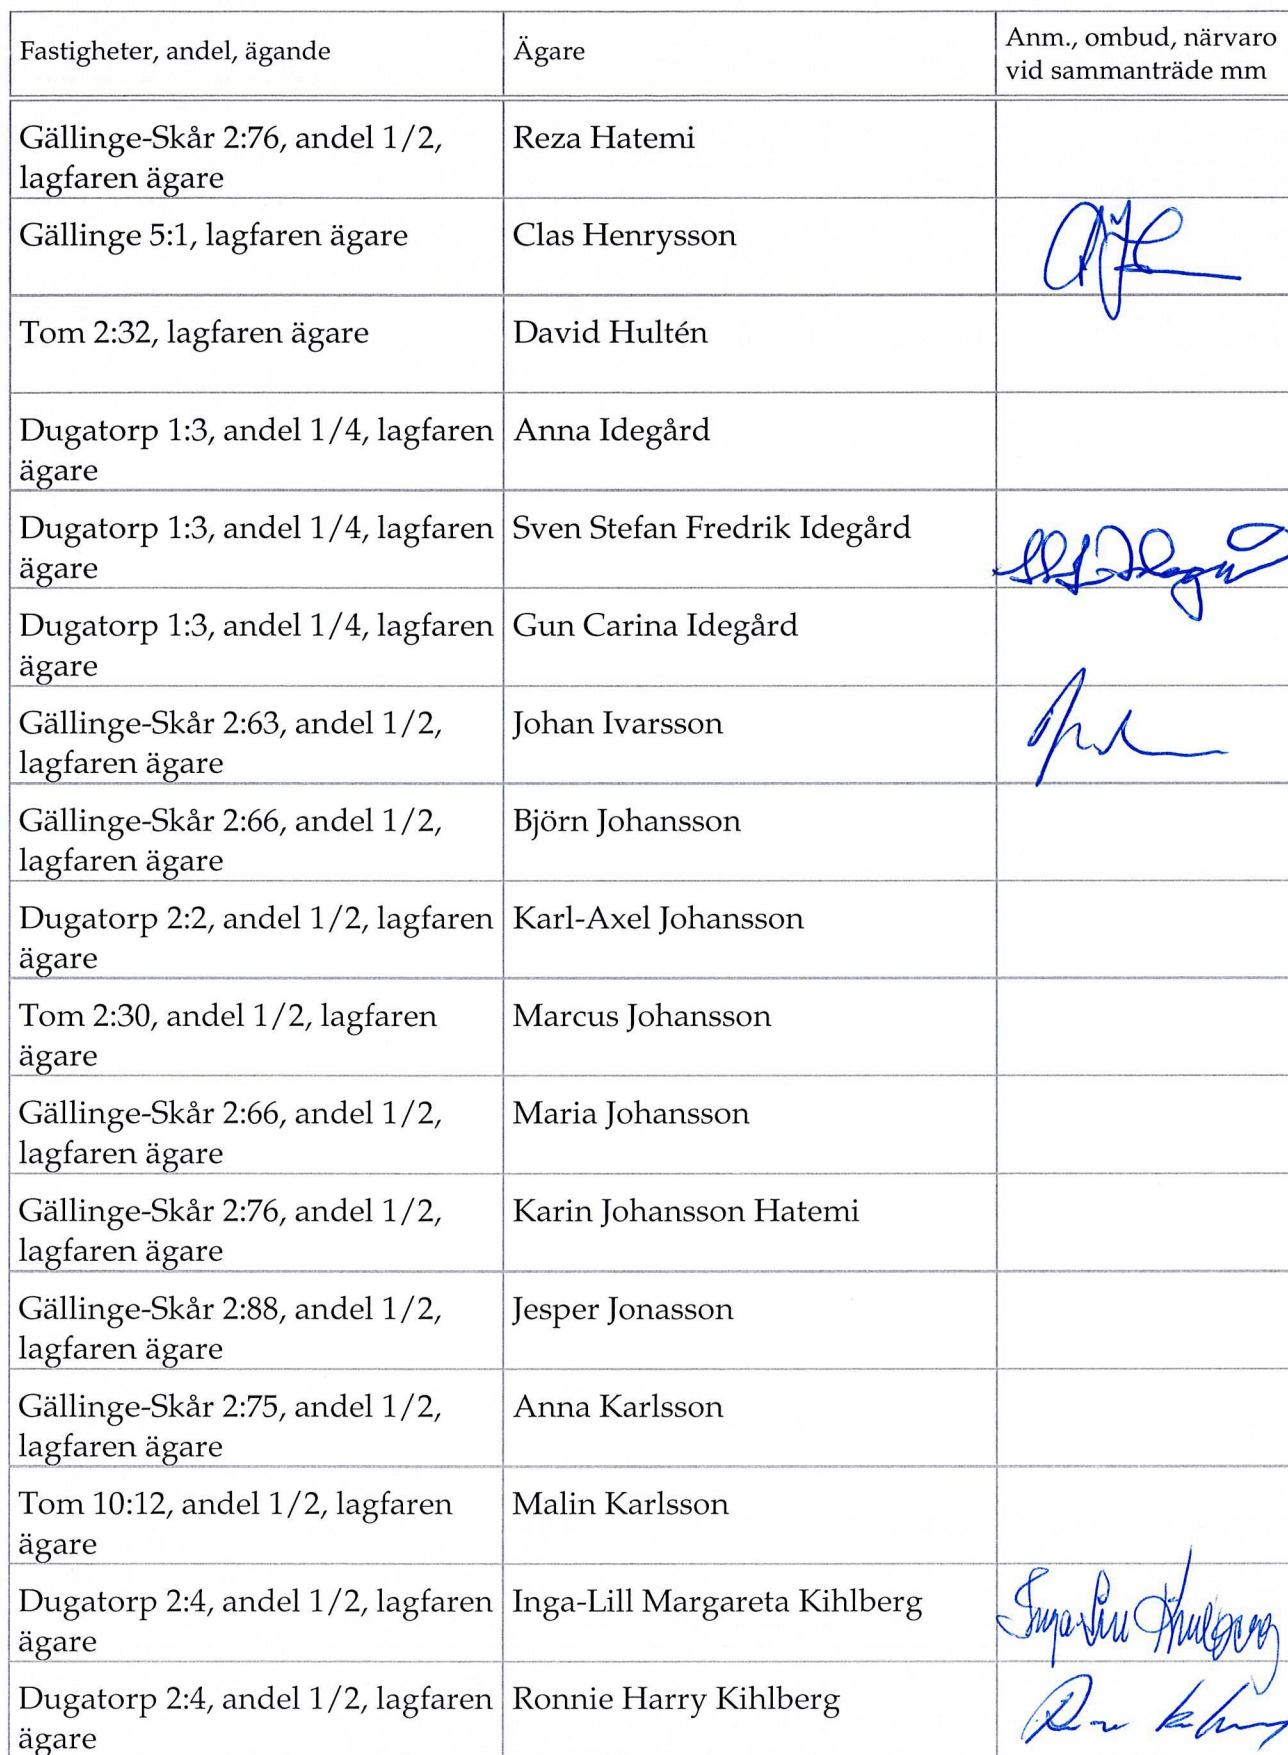 Fastigheter, andel, ägande
Ägare
Anm., ombud, närvaro
vid sammanträde mm
Gällinge-Skår 2:76, andel 1/2,
lagfaren ägare
Reza Hatemi
Gällinge 5:1, lagfaren ägare
Clas Henrysson
Tom 2:32, lagfaren ägare
David Hultén
Dugatorp 1:3, andel 1/4, lagfaren
ägare
Anna Idegård
Dugatorp 1:3, andel 1/4, lagfaren
ägare
Sven Stefan Fredrik Idegård
Dugatorp 1:3, andel 1/4, lagfaren
ägare
Gun Carina Idegård
Gällinge-Skår 2:63, andel 1/2,
lagfaren ägare
Johan Ivarsson
Gällinge-Skår 2:66, andel 1/2,
lagfaren ägare
Björn Johansson
Dugatorp 2:2, andel 1/2, lagfaren
ägare
Karl-Axel Johansson
Tom 2:30, andel 1/2, lagfaren
ägare
Marcus Johansson
Gällinge-Skår 2:66, andel 1/2,
lagfaren ägare
Maria Johansson
Gällinge-Skår 2:76, andel 1/2,
lagfaren ägare
Karin Johansson Hatemi
Gällinge-Skår 2:88, andel 1/2,
lagfaren ägare
Jesper Jonasson
Gällinge-Skår 2:75, andel 1/2,
lagfaren ägare
Anna Karlsson
Tom 10:12, andel 1/2, lagfaren
ägare
Malin Karlsson
Dugatorp 2:4, andel 1/2, lagfaren
ägare
Inga-Lill Margareta Kihlberg
Inga-Lill Kihlberg
Dugatorp 2:4, andel 1/2, lagfaren
ägare
Ronnie Harry Kihlberg